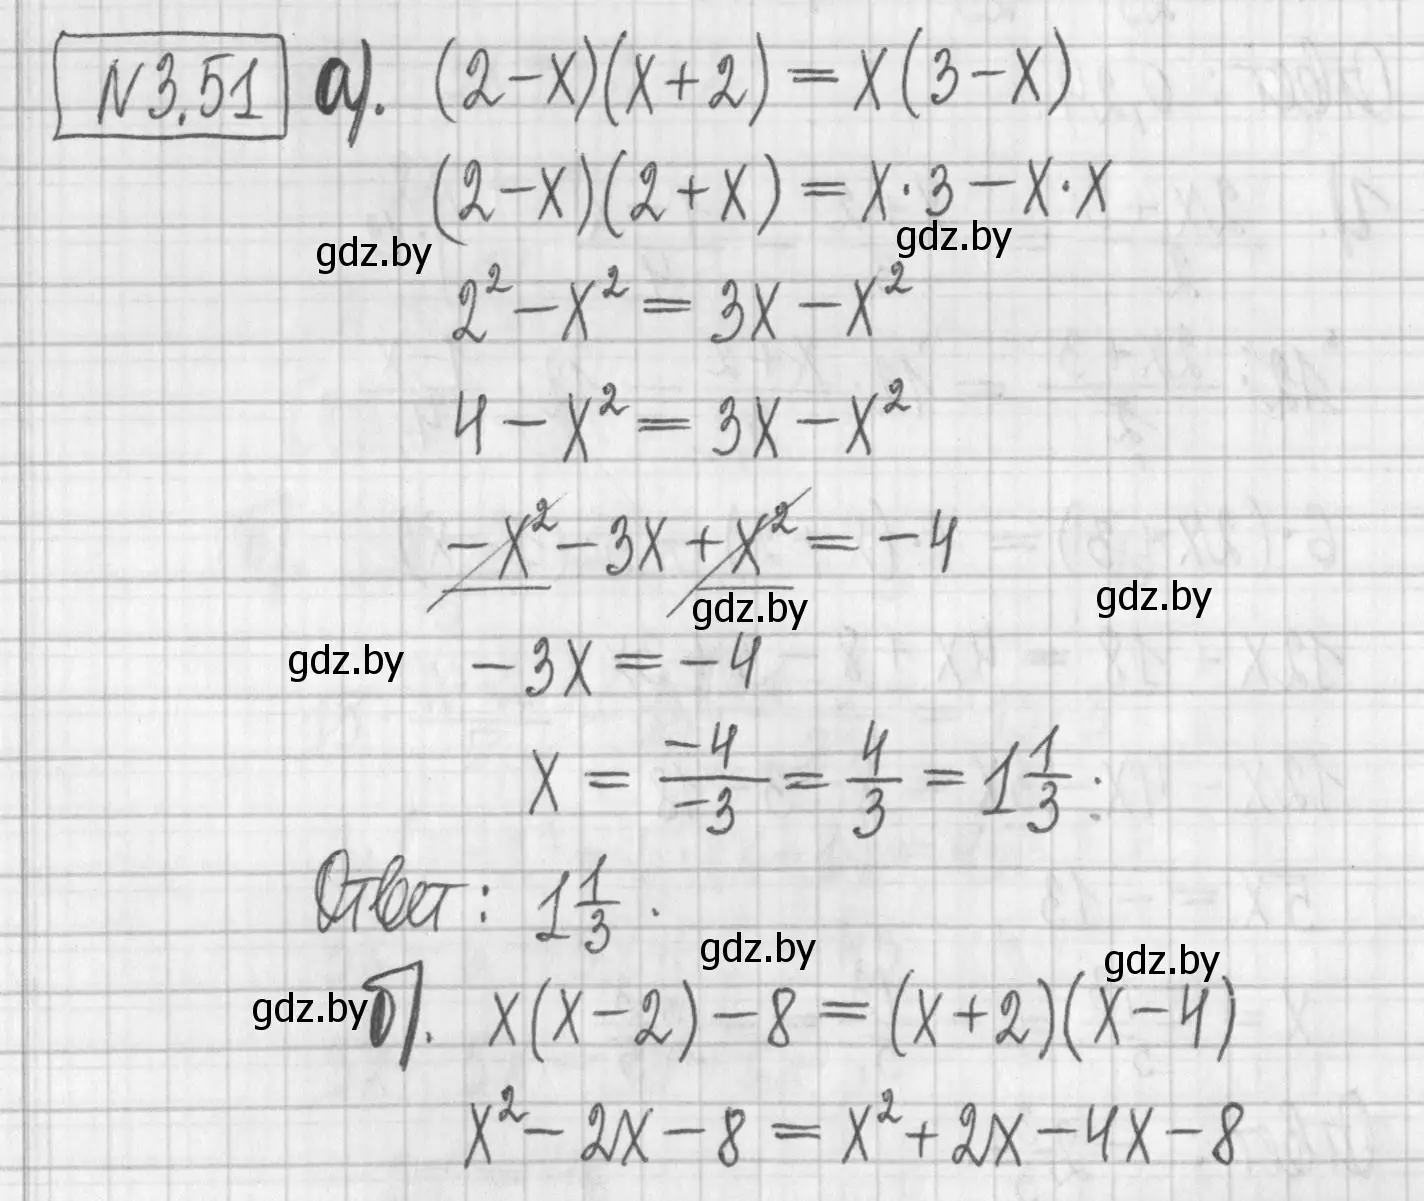 №3.51 а). (2-x)(x+2) = x(3-x)
(2-x)(2+x) = x·3-x·x
gdz.by gdz.by
2²-x² = 3x-x²
4-x² = 3x-x²
-x²-3x+x² = -4
gdz.by gdz.by
gdz.by -3x = -4
x = -4/-3 = 4/3 = 1 1/3 :
Ответ: 1 1/3 .
gdz.by gdz.by
gdz.by б). x(x-2)-8 = (x+2)(x-4)
x²-2x-8 = x²+2x-4x-8